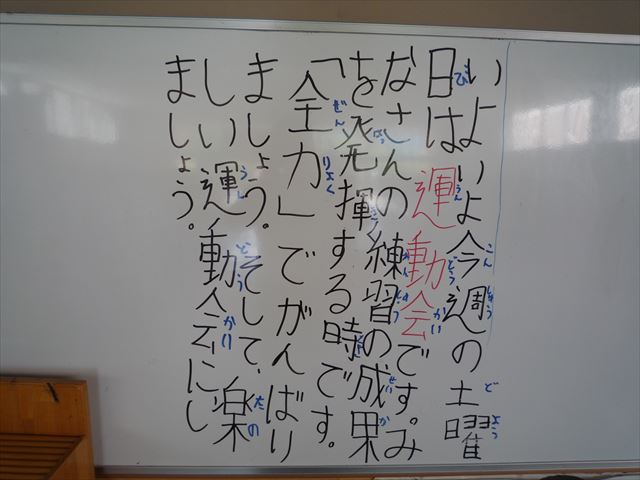 いよいよ今週の土曜
日は運動会です。み
なさんの練習の成果
を発揮する時です。
「全力」でがんばり
ましょう。そして、楽
しい運動会にし
ましょう。